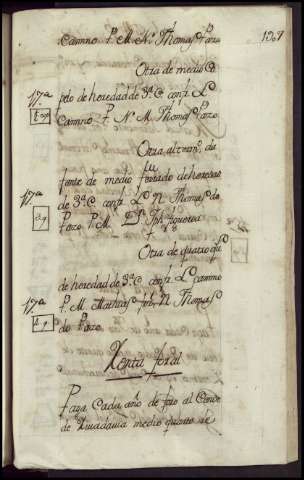 Camino P. M. N. Thomas Pazo
1367
Otra de medio C
pelo de heredad de 3ª C conf. L
Camino P. N. M. Thomas Pazo
17ª
Otra al mᵒ. de
fonte de medio ferrado de heredad
de 3ª C conf. L N Thomas do
Pazo P. M. Dⁿ figueroa
17ª
Otra de quatro qˢ
de heredad de 3ª C conf. L camino
P. M. Mathias N Thomas
do Pazo
17ª
Renta foral
Paga Cada año de foro al Conde
de Rivadavia medio quarto de